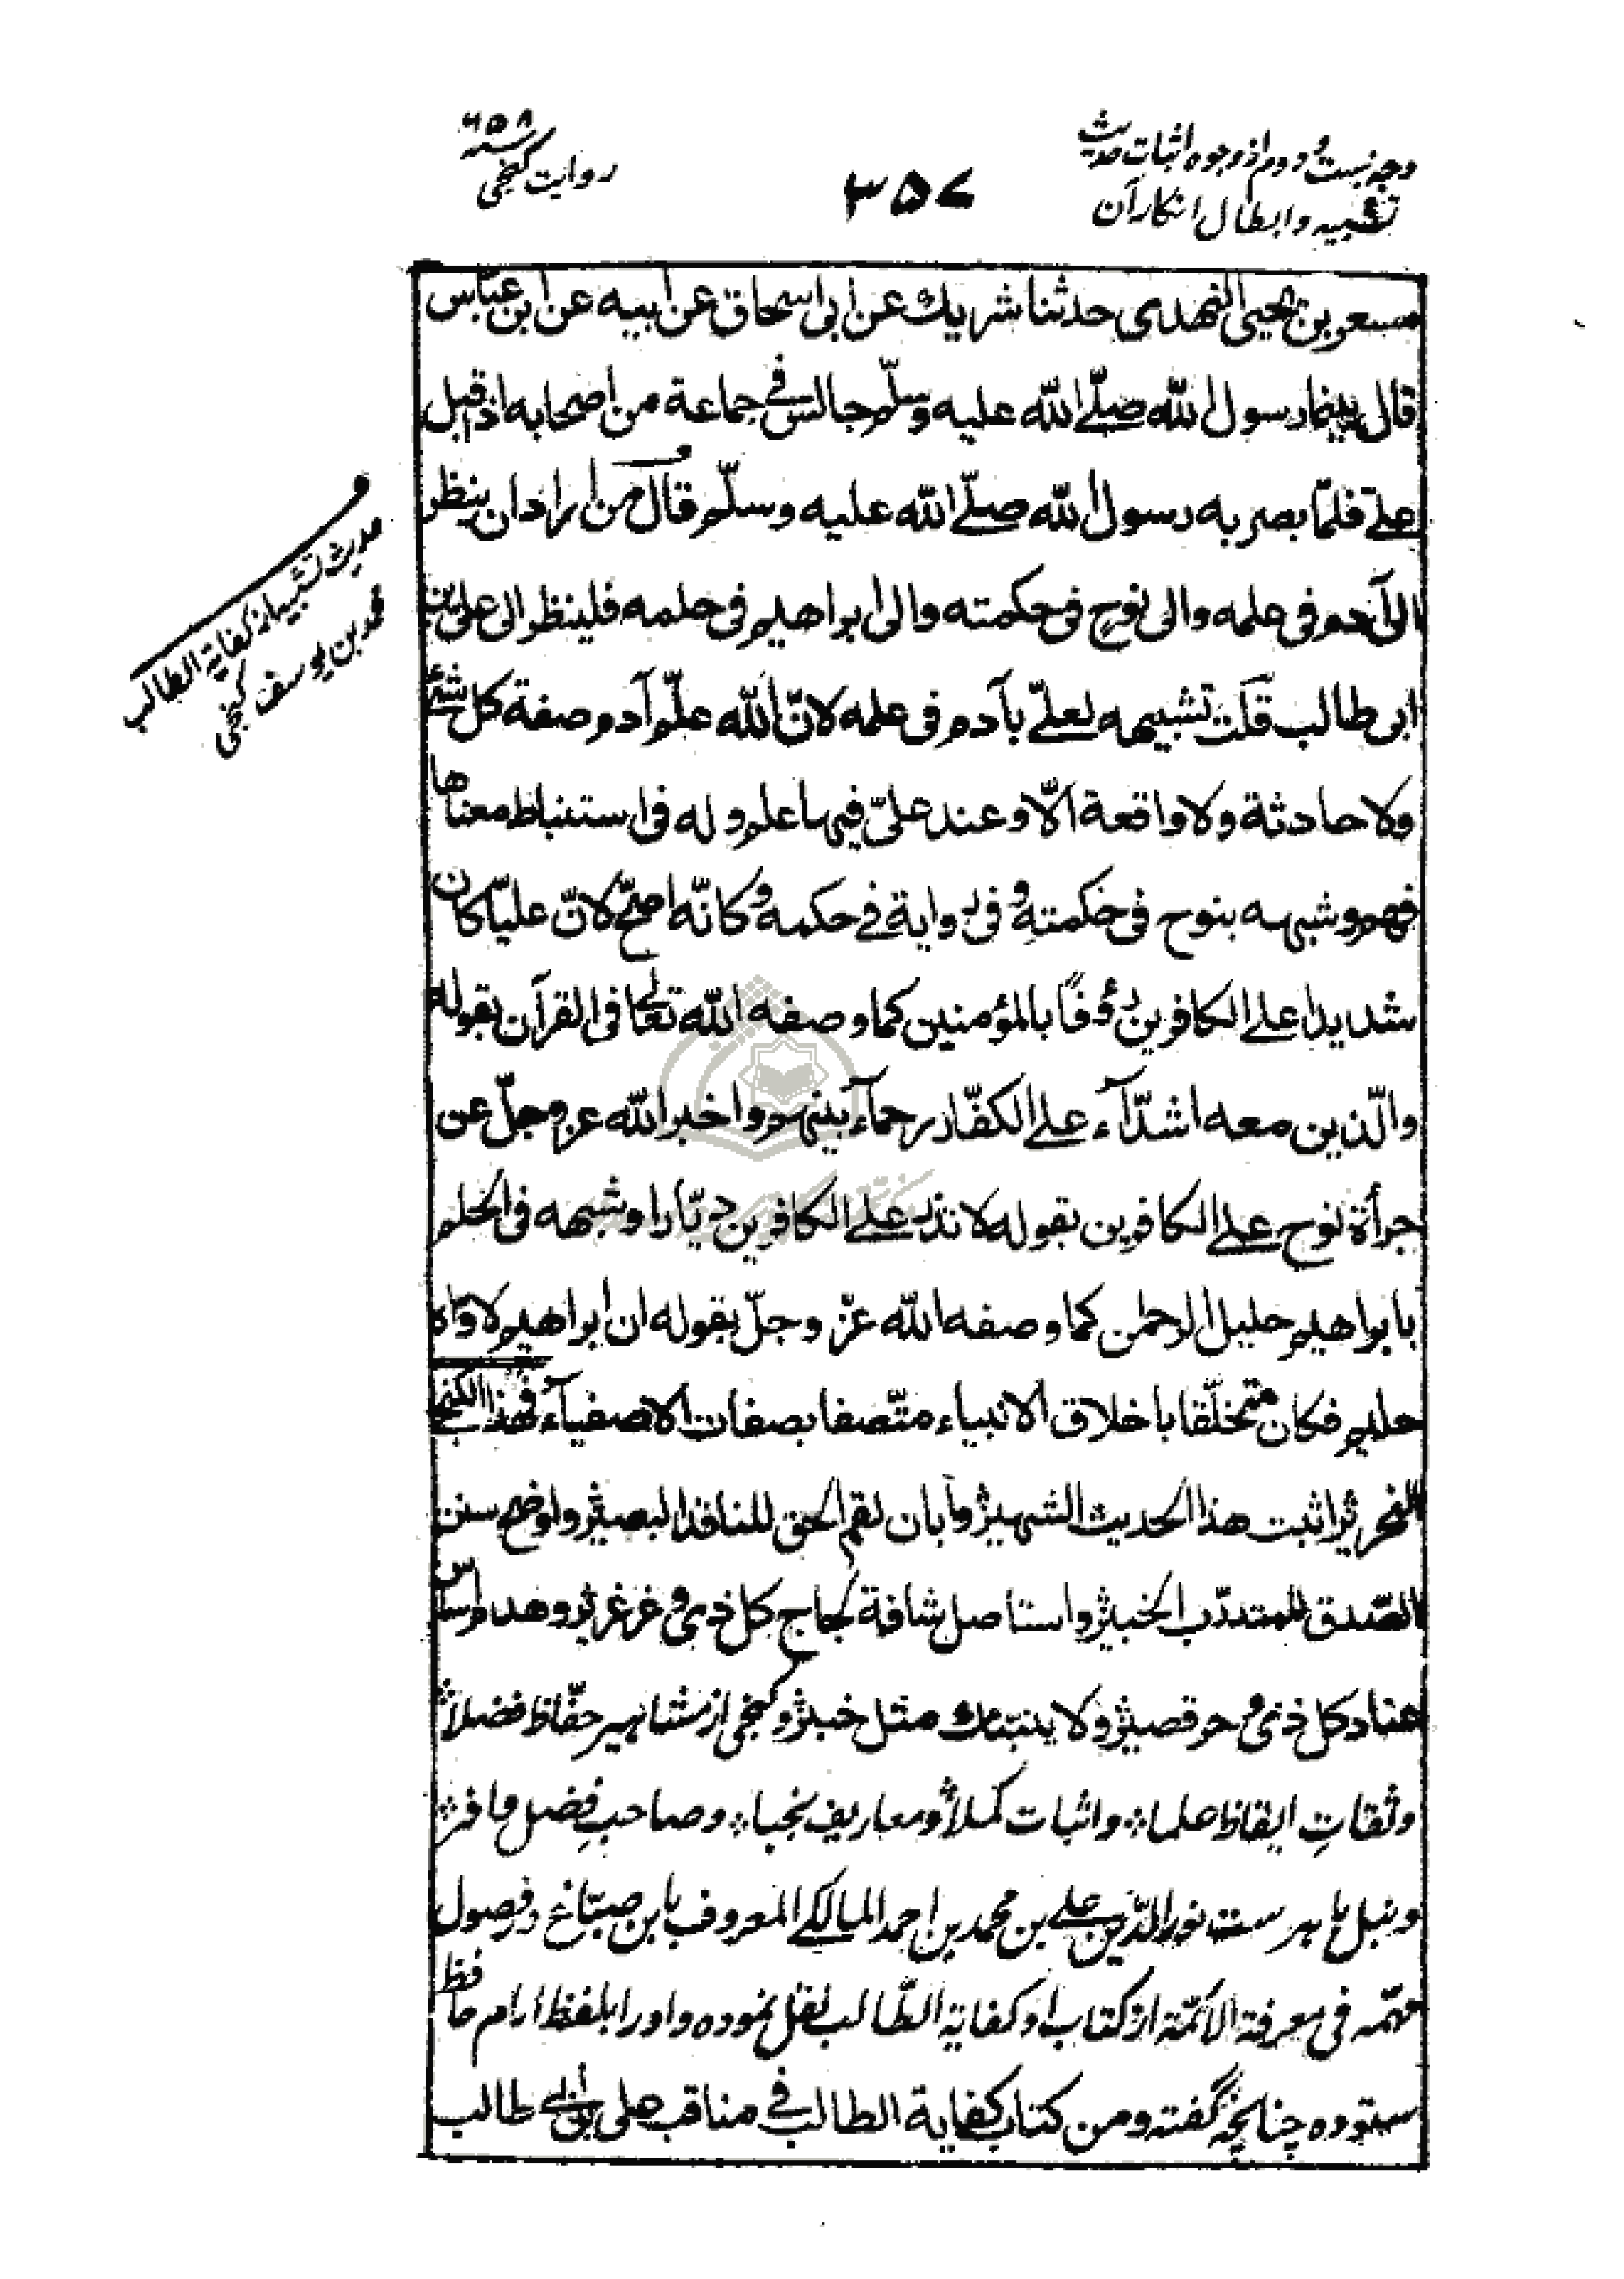 وجه بیست و دوم از وجوه اثبات حدیث
تشبیه و ابطال انکار آن
۳۵۷
روایت کنجی
سنه ۶۵۸
مسعر بن يحيى النهدى حدثنا شريك عن ابى اسحاق عن ابيه عن ابن عباس
قال بينما رسول الله صلّى الله عليه وسلّم جالس فى جماعة من اصحابه اذ اقبل
علىّ فلمّا بصر به رسول الله صلّى الله عليه وسلّم قال من اراد ان ينظر
الى آدم فى علمه والى نوح فى حكمته والى ابراهيم فى حلمه فلينظر الى على بن
ابى طالب قلت تشبيهه لعلىّ بآدم فى علمه لانّ الله علّم آدم صفة كل شئ
ولا حادثة ولا واقعة الّا وعند علىّ فيها علم وله فى استنباط معناها
فهم وشبهه بنوح فى حكمته وفى رواية فى حكمه وكانّه اصحّ لانّ عليّا كان
شديدا على الكافرين رؤفًا بالمؤمنين كما وصفه الله تعالى فى القرآن بقوله
والّذين معه اشدّآء على الكفّار رحمآء بينهم واخبر الله عز وجلّ عن
جرأة نوح على الكافرين بقوله لا تذر على الكافرين ديّارا وشبهه فى الحلم
بابراهيم خليل الرحمن كما وصفه الله عزّ وجلّ بقوله ان ابراهيم لاوّاه
حليم فكان متخلّقا باخلاق الانبياء متّصفا بصفات الاصفيآء فهذا الكنجى
النحرير اثبت هذا الحديث الشهير وابان لقم الحق للناقد البصير واوضح سنن
الصّدق للمتدرّب الخبير واستاصل شافة لجاج كل ذى وغر غرير وهدم اسّ
عناد كل ذى وحر قصير ولا ينبئك مثل خبير وکنجی از مشاهیر حفّاظ فضلا
وثقاتِ ایقاظ علما واثبات کملا ومعاریف نجبا وصاحبِ فضل وافر
ونبل باهر ست نور الدّین علی بن محمد بن احمد المالکی المعروف بابن صبّاغ در فصول
مهمّه فی معرفة الائمّة از کتاب او کفایة الطّالب نقل نموده و او را بلفظ امام حافظ
ستوده چنانچه گفته ومن كتاب كفاية الطالب فى مناقب على بن ابى طالب
حدیث تشبیه از کفایة الطالب
محمد بن یوسف کنجی